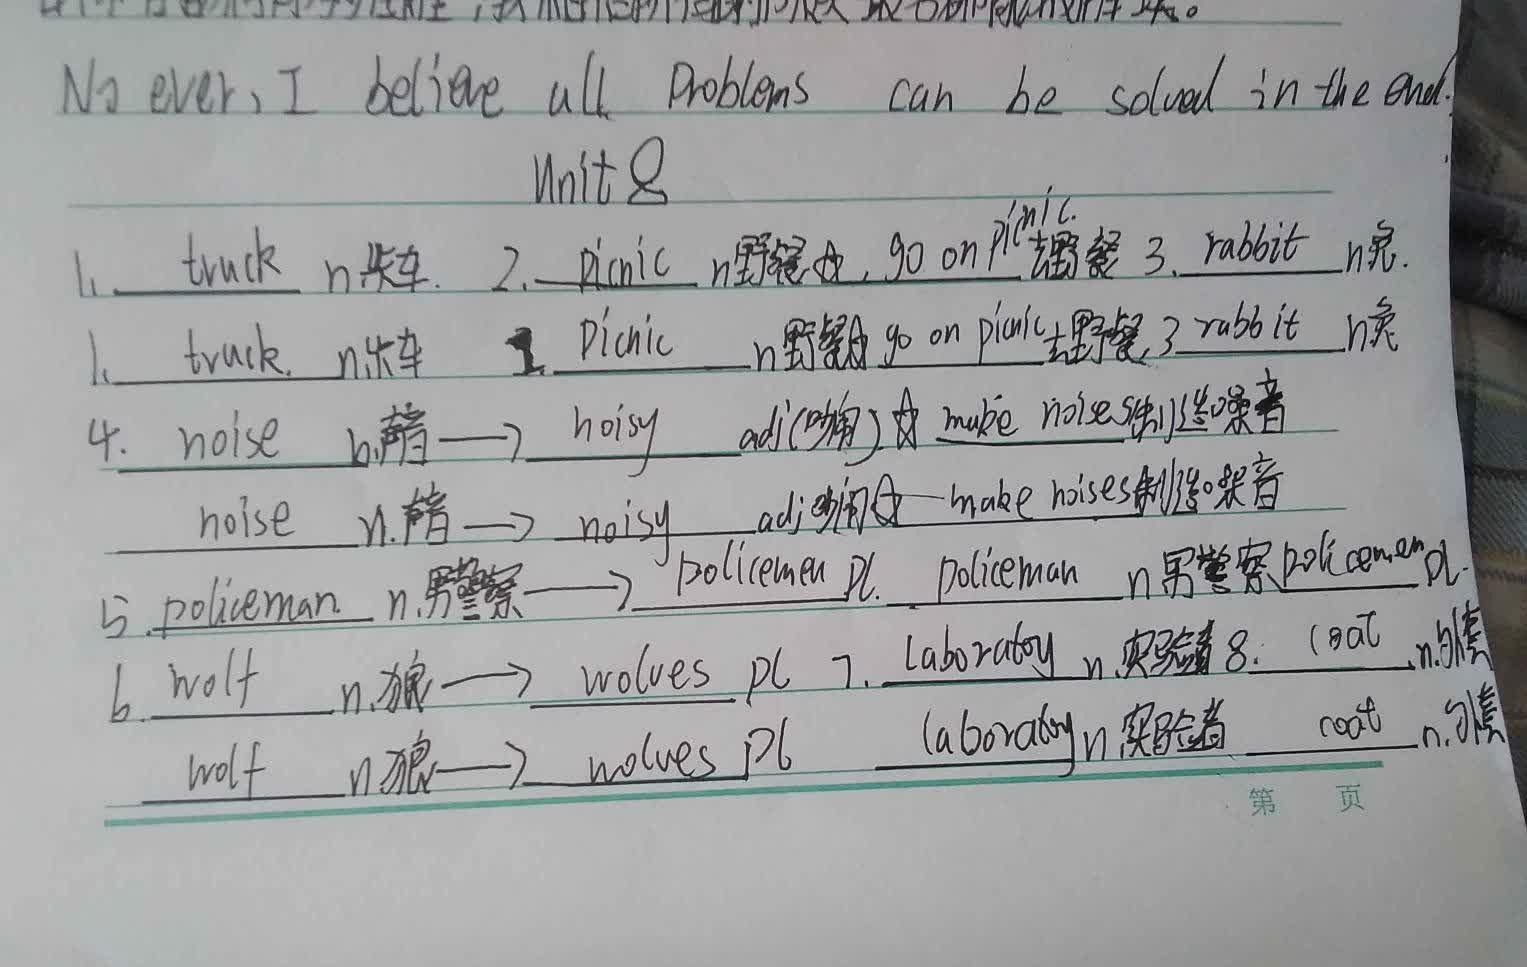 No ever, I believe all problems can be solved in the end.
Unit 8
1. truck n.卡车. 2. picnic n野餐☆, go on picnic. 去野餐 3. rabbit n兔.
1. truck. n.卡车 2. Picnic n野餐☆ go on picnic 去野餐, 3 rabbit n兔
4. noise n.声音 → noisy adj(吵闹)☆ make noises制造噪音
noise n.声音 → noisy adj吵闹☆ make noises制造噪音
5. policeman n.男警察 → policemen pl. policeman n男警察 policemen pl.
6. wolf n.狼 → wolves pl 7. Laboratoy n.实验者 8. coat n.外套
wolf n.狼 → wolves pl laboratoy n实验者 coat n.外套
第 页